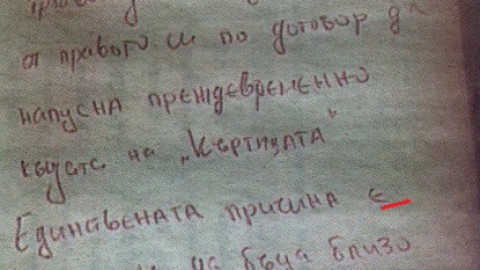 от правото си по договор да
напусна преждевременно
къщата на „Къртицата"
Единствената причина е
да бъда близо